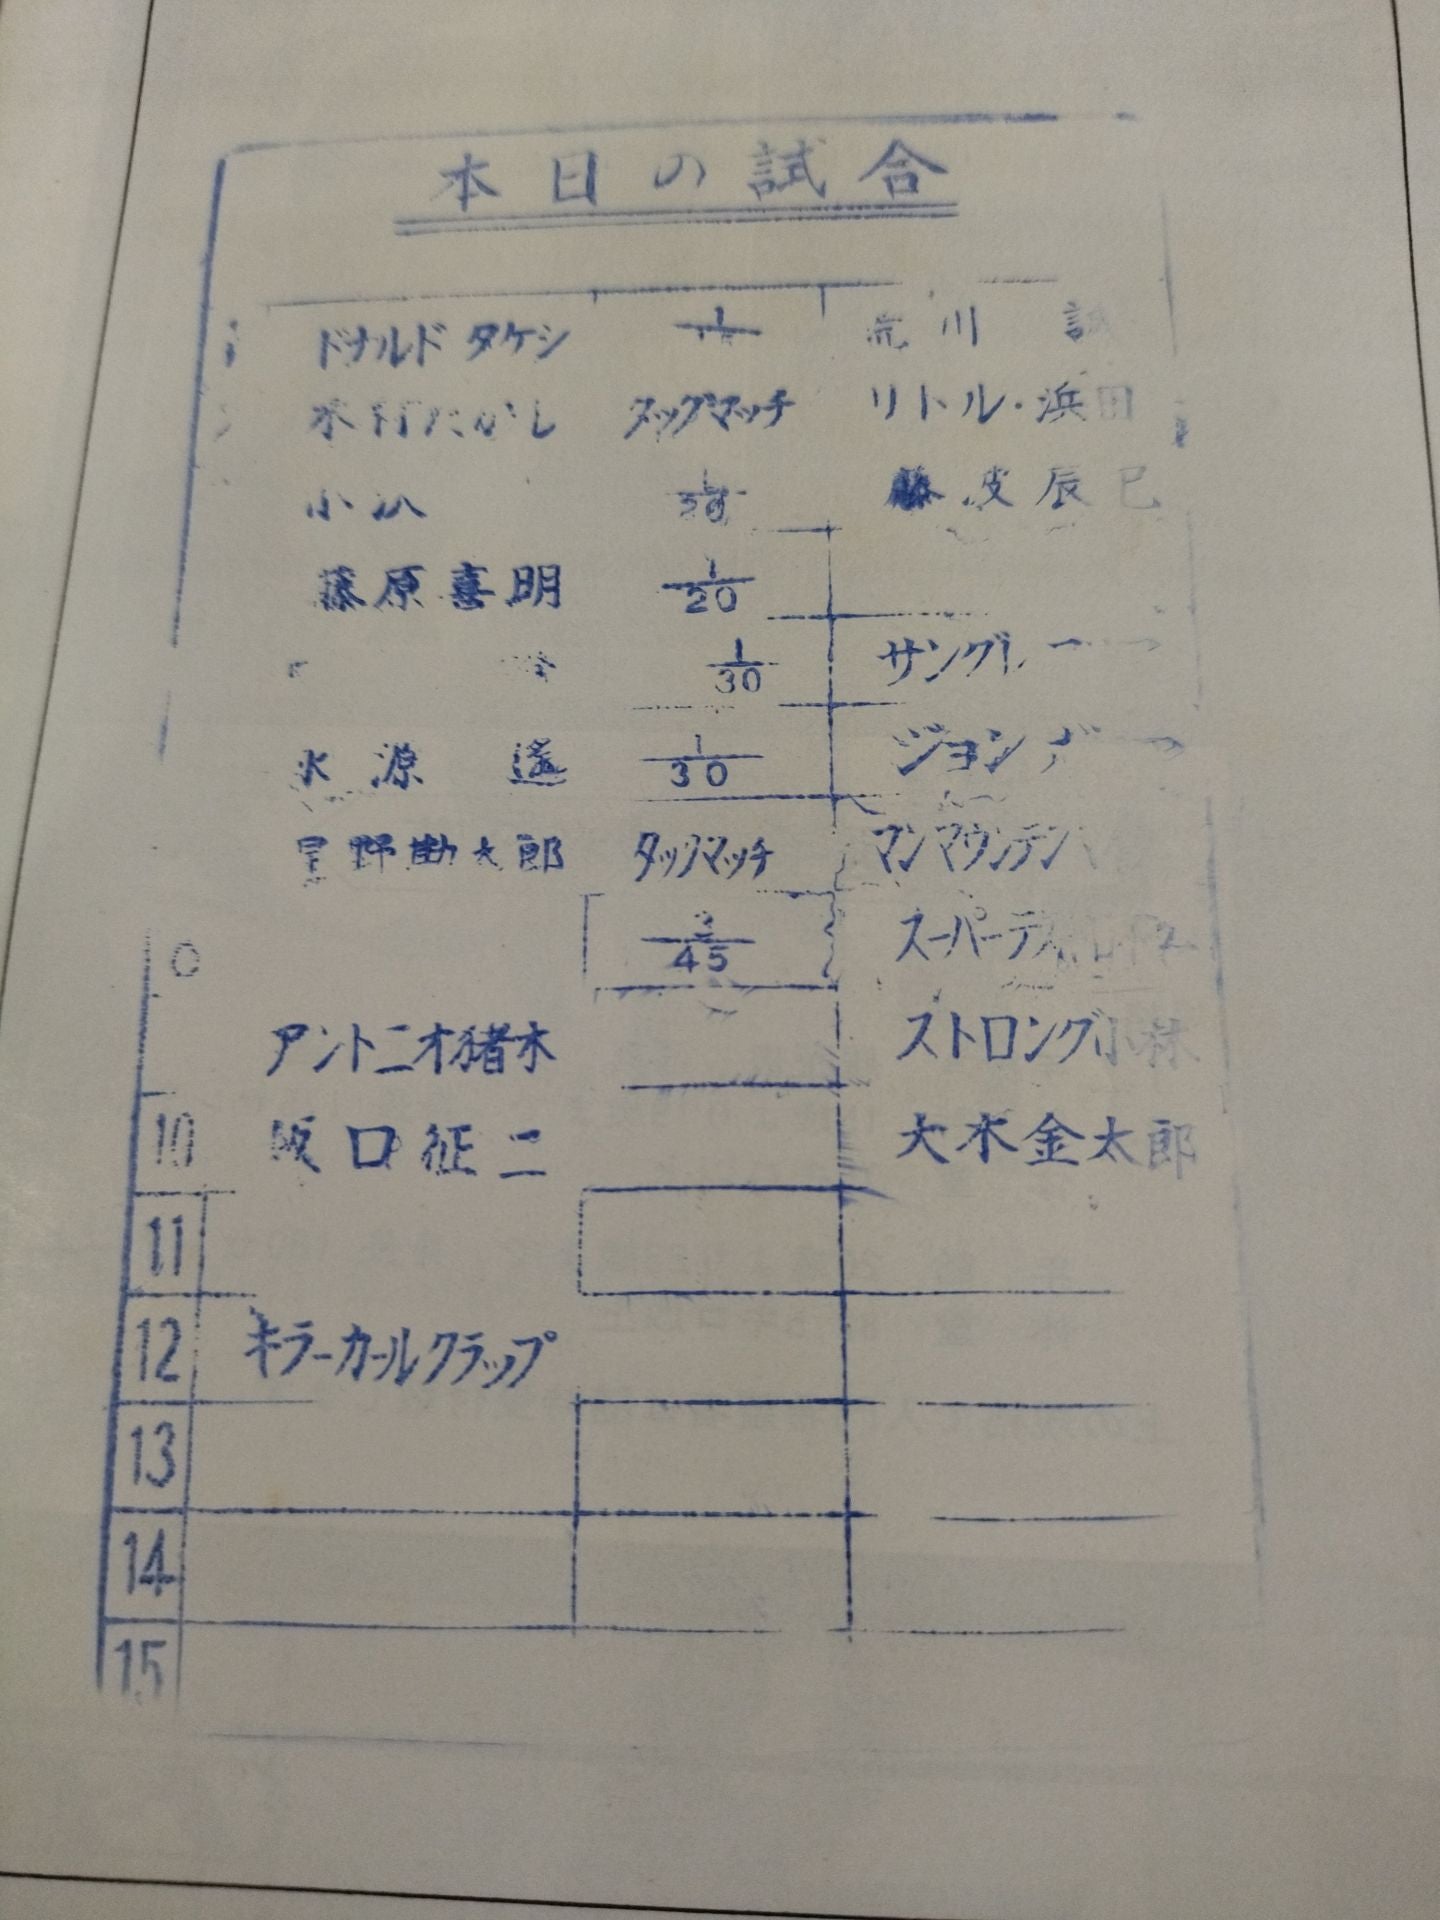 本日の試合
ドナルドタケシ 1 荒川 誠
木村たかし タッグマッチ リトル・浜田
小 1/20 藤波辰巳
藤原喜明 1/20
1/30 サングレ
永源 遙 1/30 ジョン
星野勘太郎 タッグマッチ マンマウンテン
3/45 スーパーデス
アントニオ猪木 ストロング小林
10 坂口征二 大木金太郎
11
12 キラーカールクラップ
13
14
15